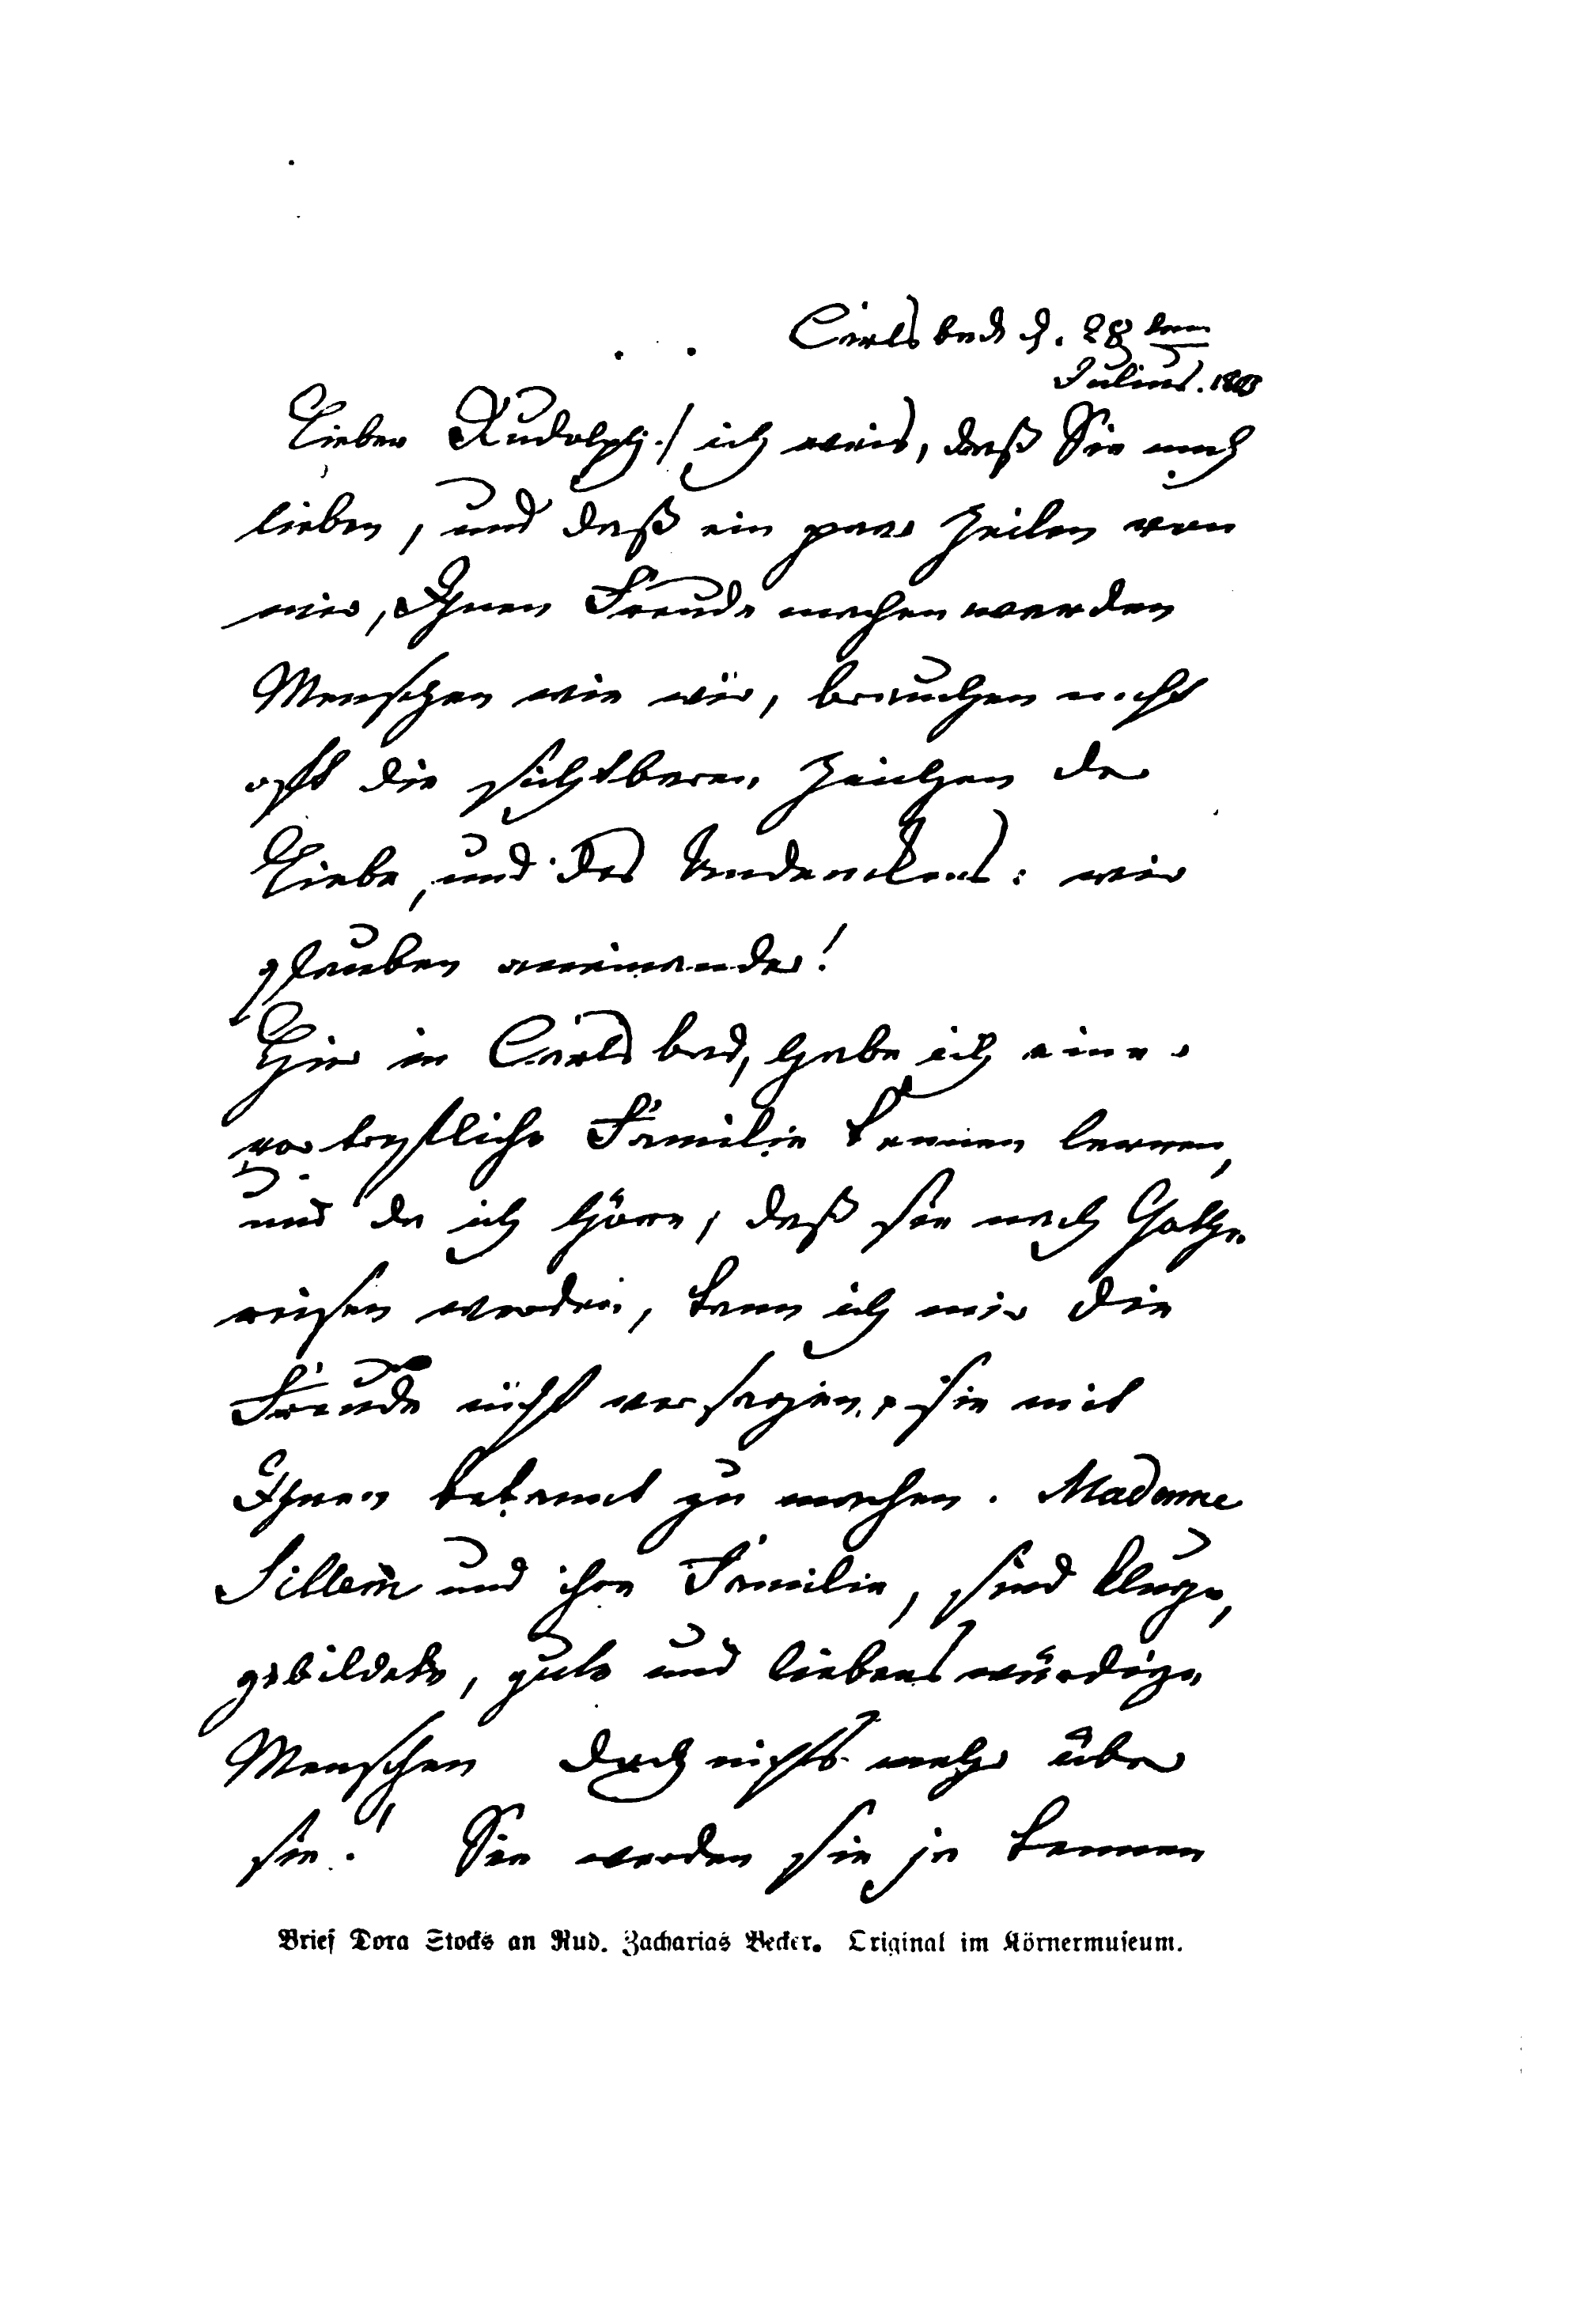 Carlsbad d. 28 ten
Julius. 18
Lieber Rudolph! ich weis, daß Sie mich
lieben, und daß ein paar Zeilen von
mir, Ihnen Freude machen werden
Menschen wie wir, brauchen nicht
oft die sichtbaren Zeichen der
Liebe, und des Andenckens: wir
glauben aneinander!
Hier in Carlsbad, habe ich eine
vortrefliche Familie kennen lernen,
und da ich höre, daß sie nach Gotha
reisen werden, kann ich mir die
Freude nicht versagen, sie mit
Ihnen bekannt zu machen. Madame
Sillem und ihre Familie, sind kluge,
gebildete, gute und liebenswürdige
Menschen doch nichts mehr über
sie! Sie werden sie ja kennen
Brief Dora Stocks an Rud. Zacharias Becker. Original im Körnermuseum.